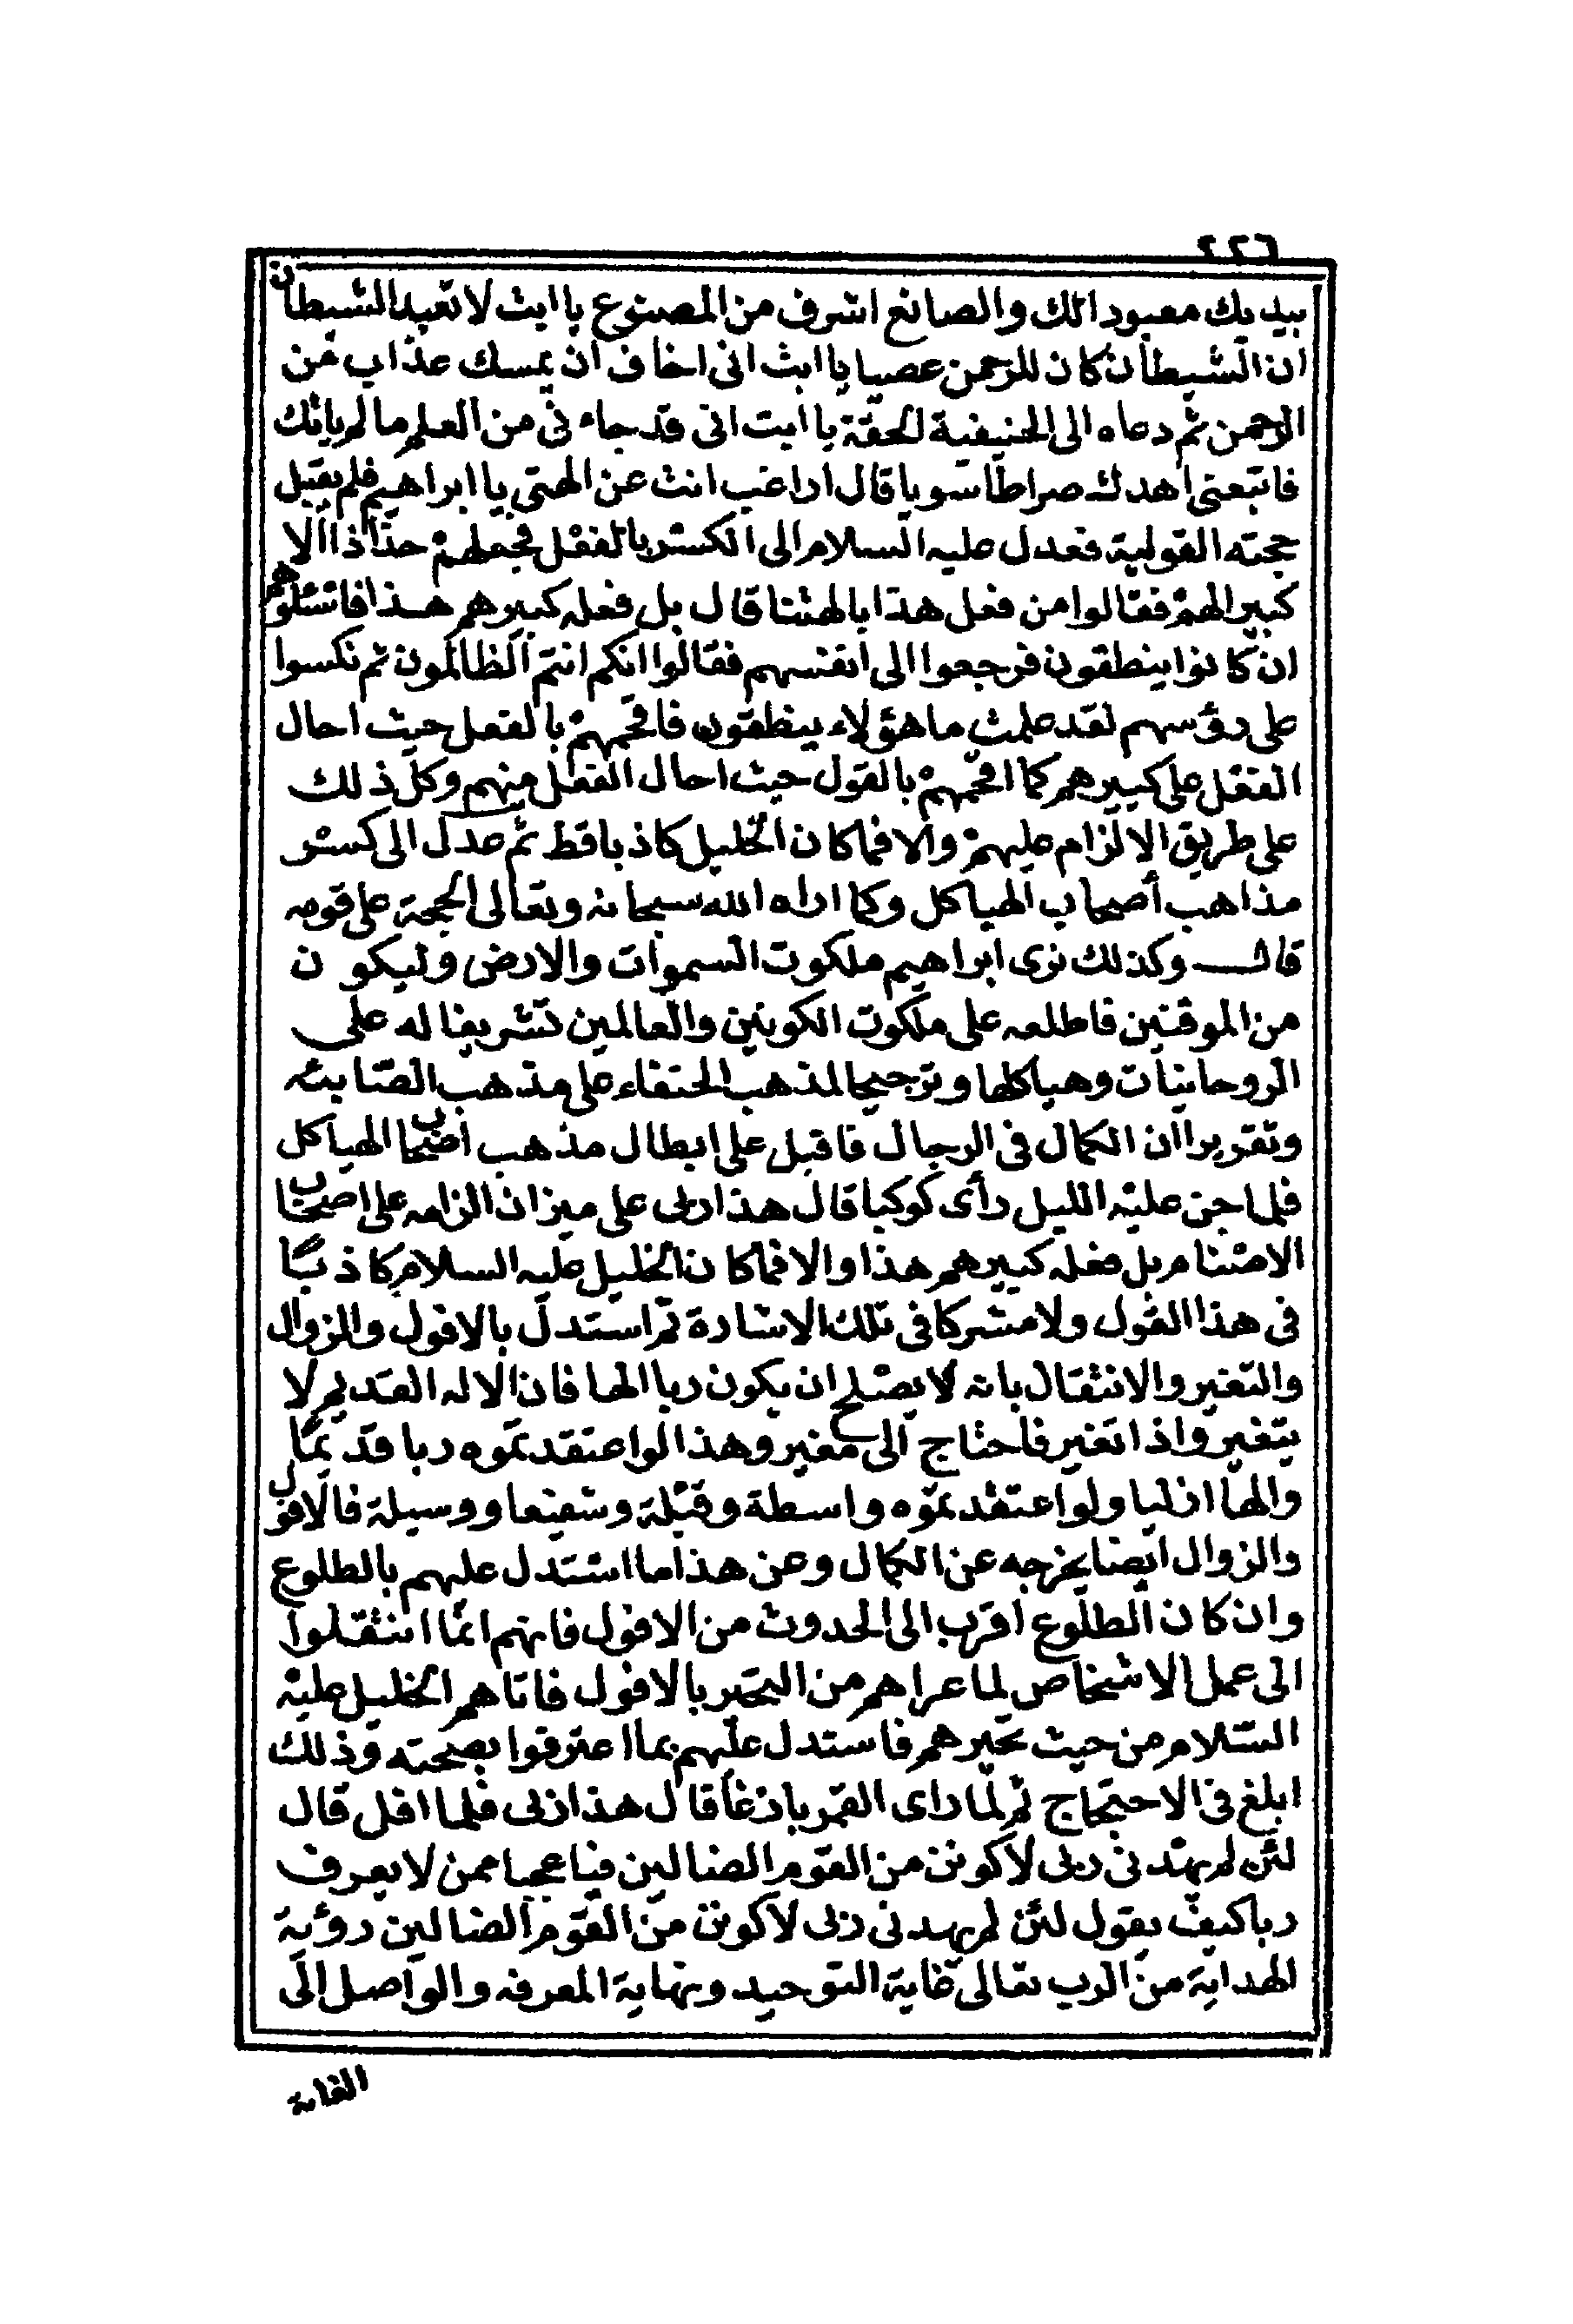 ٢٢٦
بيديك معبودا لك والصانع اشرف من المصنوع يا ابت لا تعبد الشيطان
ان الشيطان كان للرحمن عصيا يا ابت انى اخاف ان يمسك عذاب من
الرحمن ثم دعاه الى الحنيفية الحقة يا ابت انى قد جاءنى من العلم ما لم ياتك
فاتبعنى اهدك صراطا سويا قال اراغب انت عن الهتى يا ابراهيم فلم يقبل
حجته القولية فعدل عليه السلام الى الكسر بالفعل فجعلهم جذاذا الا
كبير الهم فقالوا من فعل هذا بالهتنا قال بل فعله كبيرهم هذا فاسئلوهم
ان كانوا ينطقون فرجعوا الى انفسهم فقالوا انكم انتم الظالمون ثم نكسوا
على رؤسهم لقد علمت ما هؤلاء ينطقون فافحمهم بالفعل حيث احال
الفعل على كبيرهم كما افحمهم بالقول حيث احال الفعل منهم وكل ذلك
على طريق الالزام عليهم والا فما كان الخليل كاذبا قط ثم عدل الى كسر
مذاهب أصحاب الهياكل وكما اراه الله سبحانه وتعالى الحجة على قومه
قال وكذلك نرى ابراهيم ملكوت السموات والارض وليكون
من الموقنين فاطلعه على ملكوت الكونين والعالمين تشريفا له على
الروحانيات وهياكلها وترجيحا لمذهب الحنفاء على مذهب الصابئه
وتقريرا ان الكمال فى الرجال فاقبل على ابطال مذهب اصحاب الهياكل
فلما جن عليه الليل رأى كوكبا قال هذا ربى على ميزان الزامه على اصحاب
الاصنام بل فعله كبيرهم هذا والا فما كان الخليل عليه السلام كاذبا
فى هذا القول ولا مشركا فى تلك الاشارة ثم استدل بالافول والزوال
والتغير والانتقال بانه لا يصلح ان يكون ربا الها فان الاله القديم لا
يتغير واذا تغير فاحتاج الى مغير وهذا لو اعتقدتموه ربا قديما
والها ازليا ولو اعتقدتموه واسطة وقبلة وشفيعا ووسيلة فالافول
والزوال ايضا يخرجه عن الكمال وعن هذا ما استدل عليهم بالطلوع
وان كان الطلوع اقرب الى الحدوث من الافول فانهم انما انتقلوا
الى عمل الاشخاص لما عراهم من التحير بالافول فاتاهم الخليل عليه
السلام من حيث تحيرهم فاستدل عليهم بما اعترفوا بصحته وذلك
ابلغ فى الاحتجاج ثم لما راى القمر باذغا قال هذا ربى فلما افل قال
لئن لم يهدنى ربى لاكونن من القوم الضالين فيا عجبا ممن لا يعرف
ربا كيف يقول لئن لم يهدنى ربى لاكونن من القوم الضالين رؤية
الهداية من الرب تعالى غاية التوحيد ونهاية المعرفه والواصل الى
الغاية